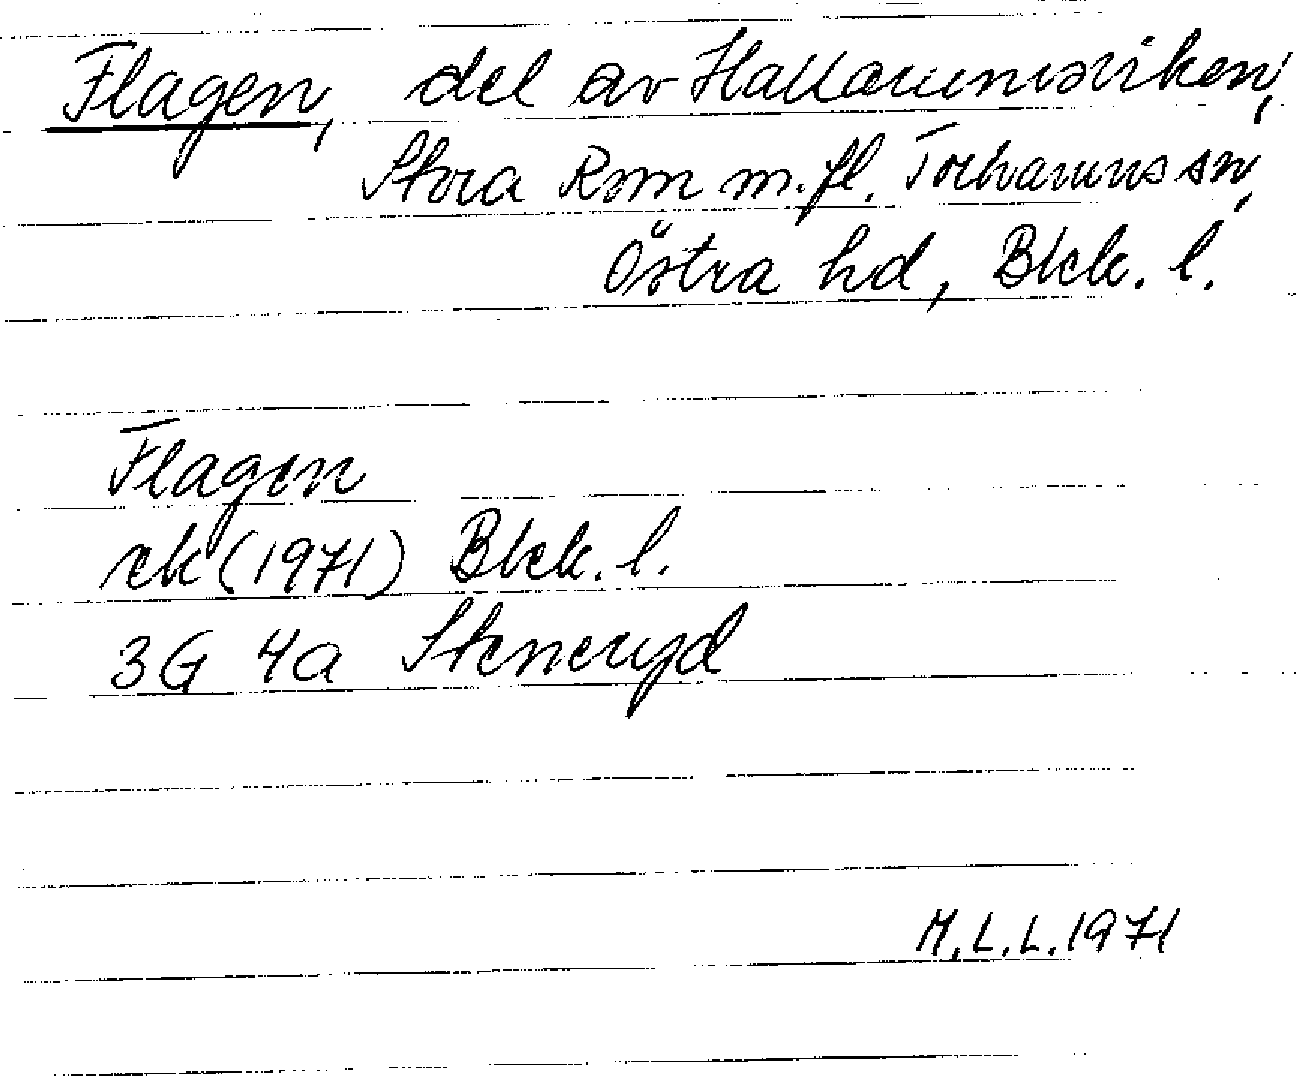 Flagen, del av Hallarumsviken,
Stora Rom m.fl. Torhamns sn,
Östra hd, Blek. l.
Flagen
ek (1971) Blek. l.
3G 4a Steneryd
M.L.L. 1971